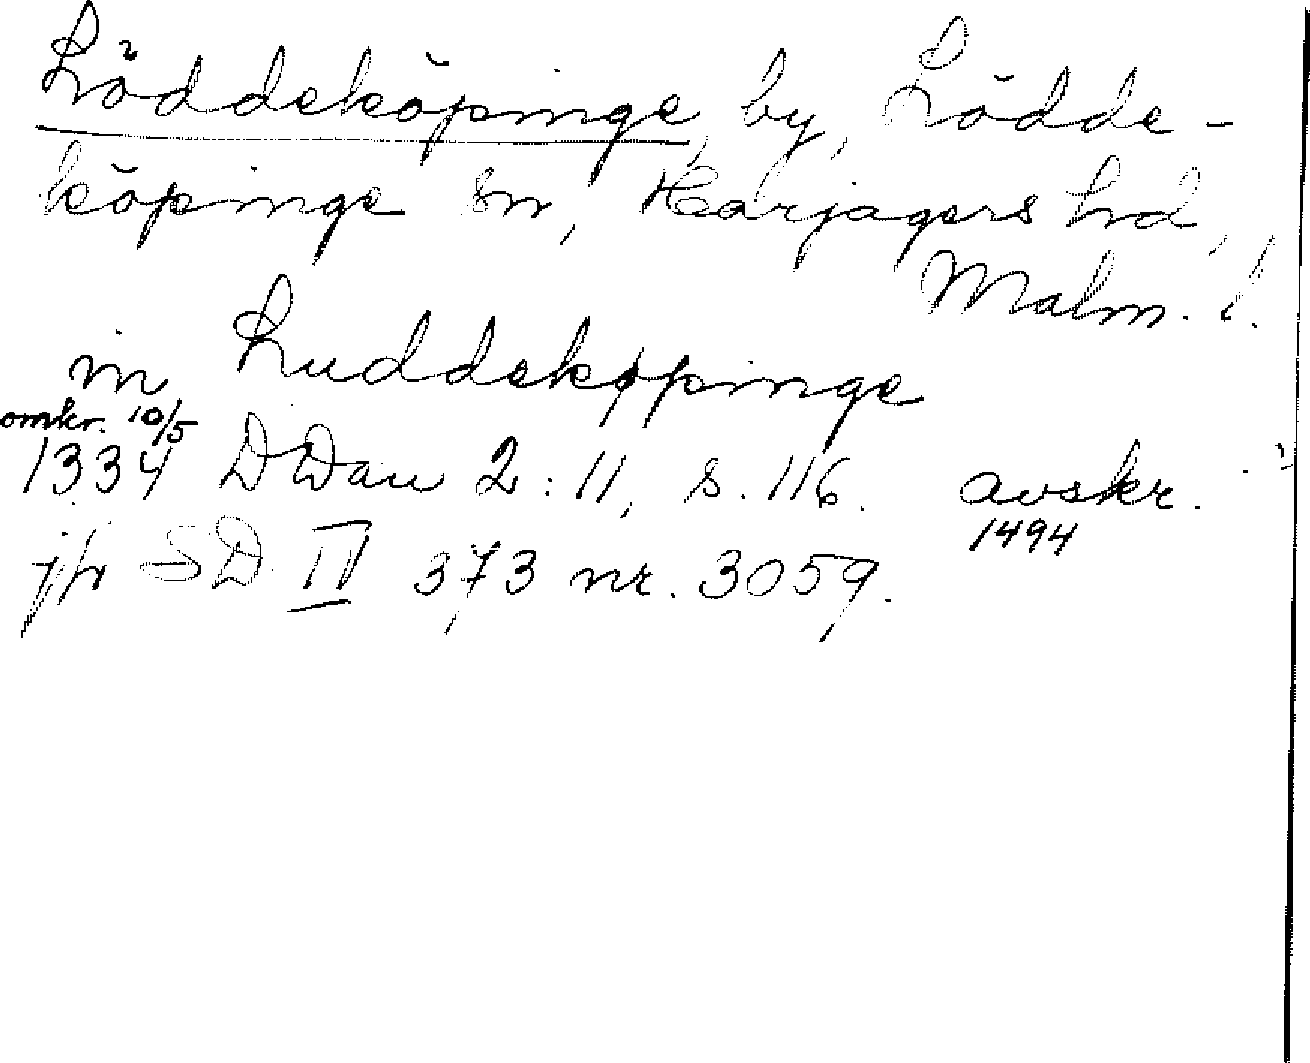 Löddeköpinge, by, Lödde-
köpinge sn, Harjagers hd,
Malm. l.
in Luddekøpinge
omkr. 10/5
1334 DDan 2:11, s. 116. avskr.
1494
jfr SD IV 373 nr. 3059.